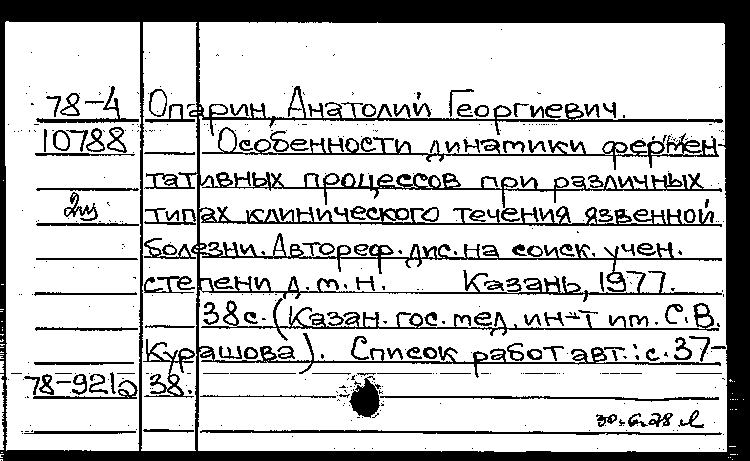 78-4 Опарин, Анатолий Георгиевич.
10788 Особенности динамики фермен-
тативных процессов при различных
2 типах клинического течения язвенной
болезни. Автореф. дис. на соиск. учен.
степени д.м.н. Казань, 1977.
38 с. (Казан. гос. мед. ин-т им. С.В.
Курашова). Список работ авт.: с. 37-
78-921а 38.
30.6.78